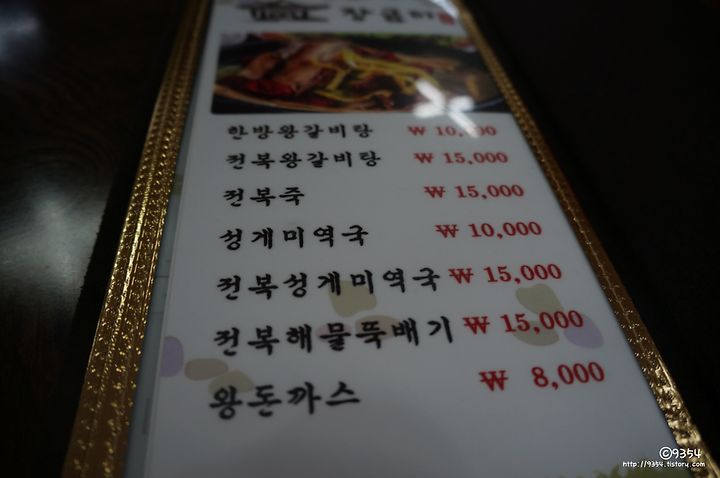 장금이
한방왕갈비탕 ₩ 10,000
전복왕갈비탕 ₩ 15,000
전복죽 ₩ 15,000
성게미역국 ₩ 10,000
전복성게미역국 ₩ 15,000
전복해물뚝배기 ₩ 15,000
왕돈까스 ₩ 8,000
©9354
http://9354.tistory.com